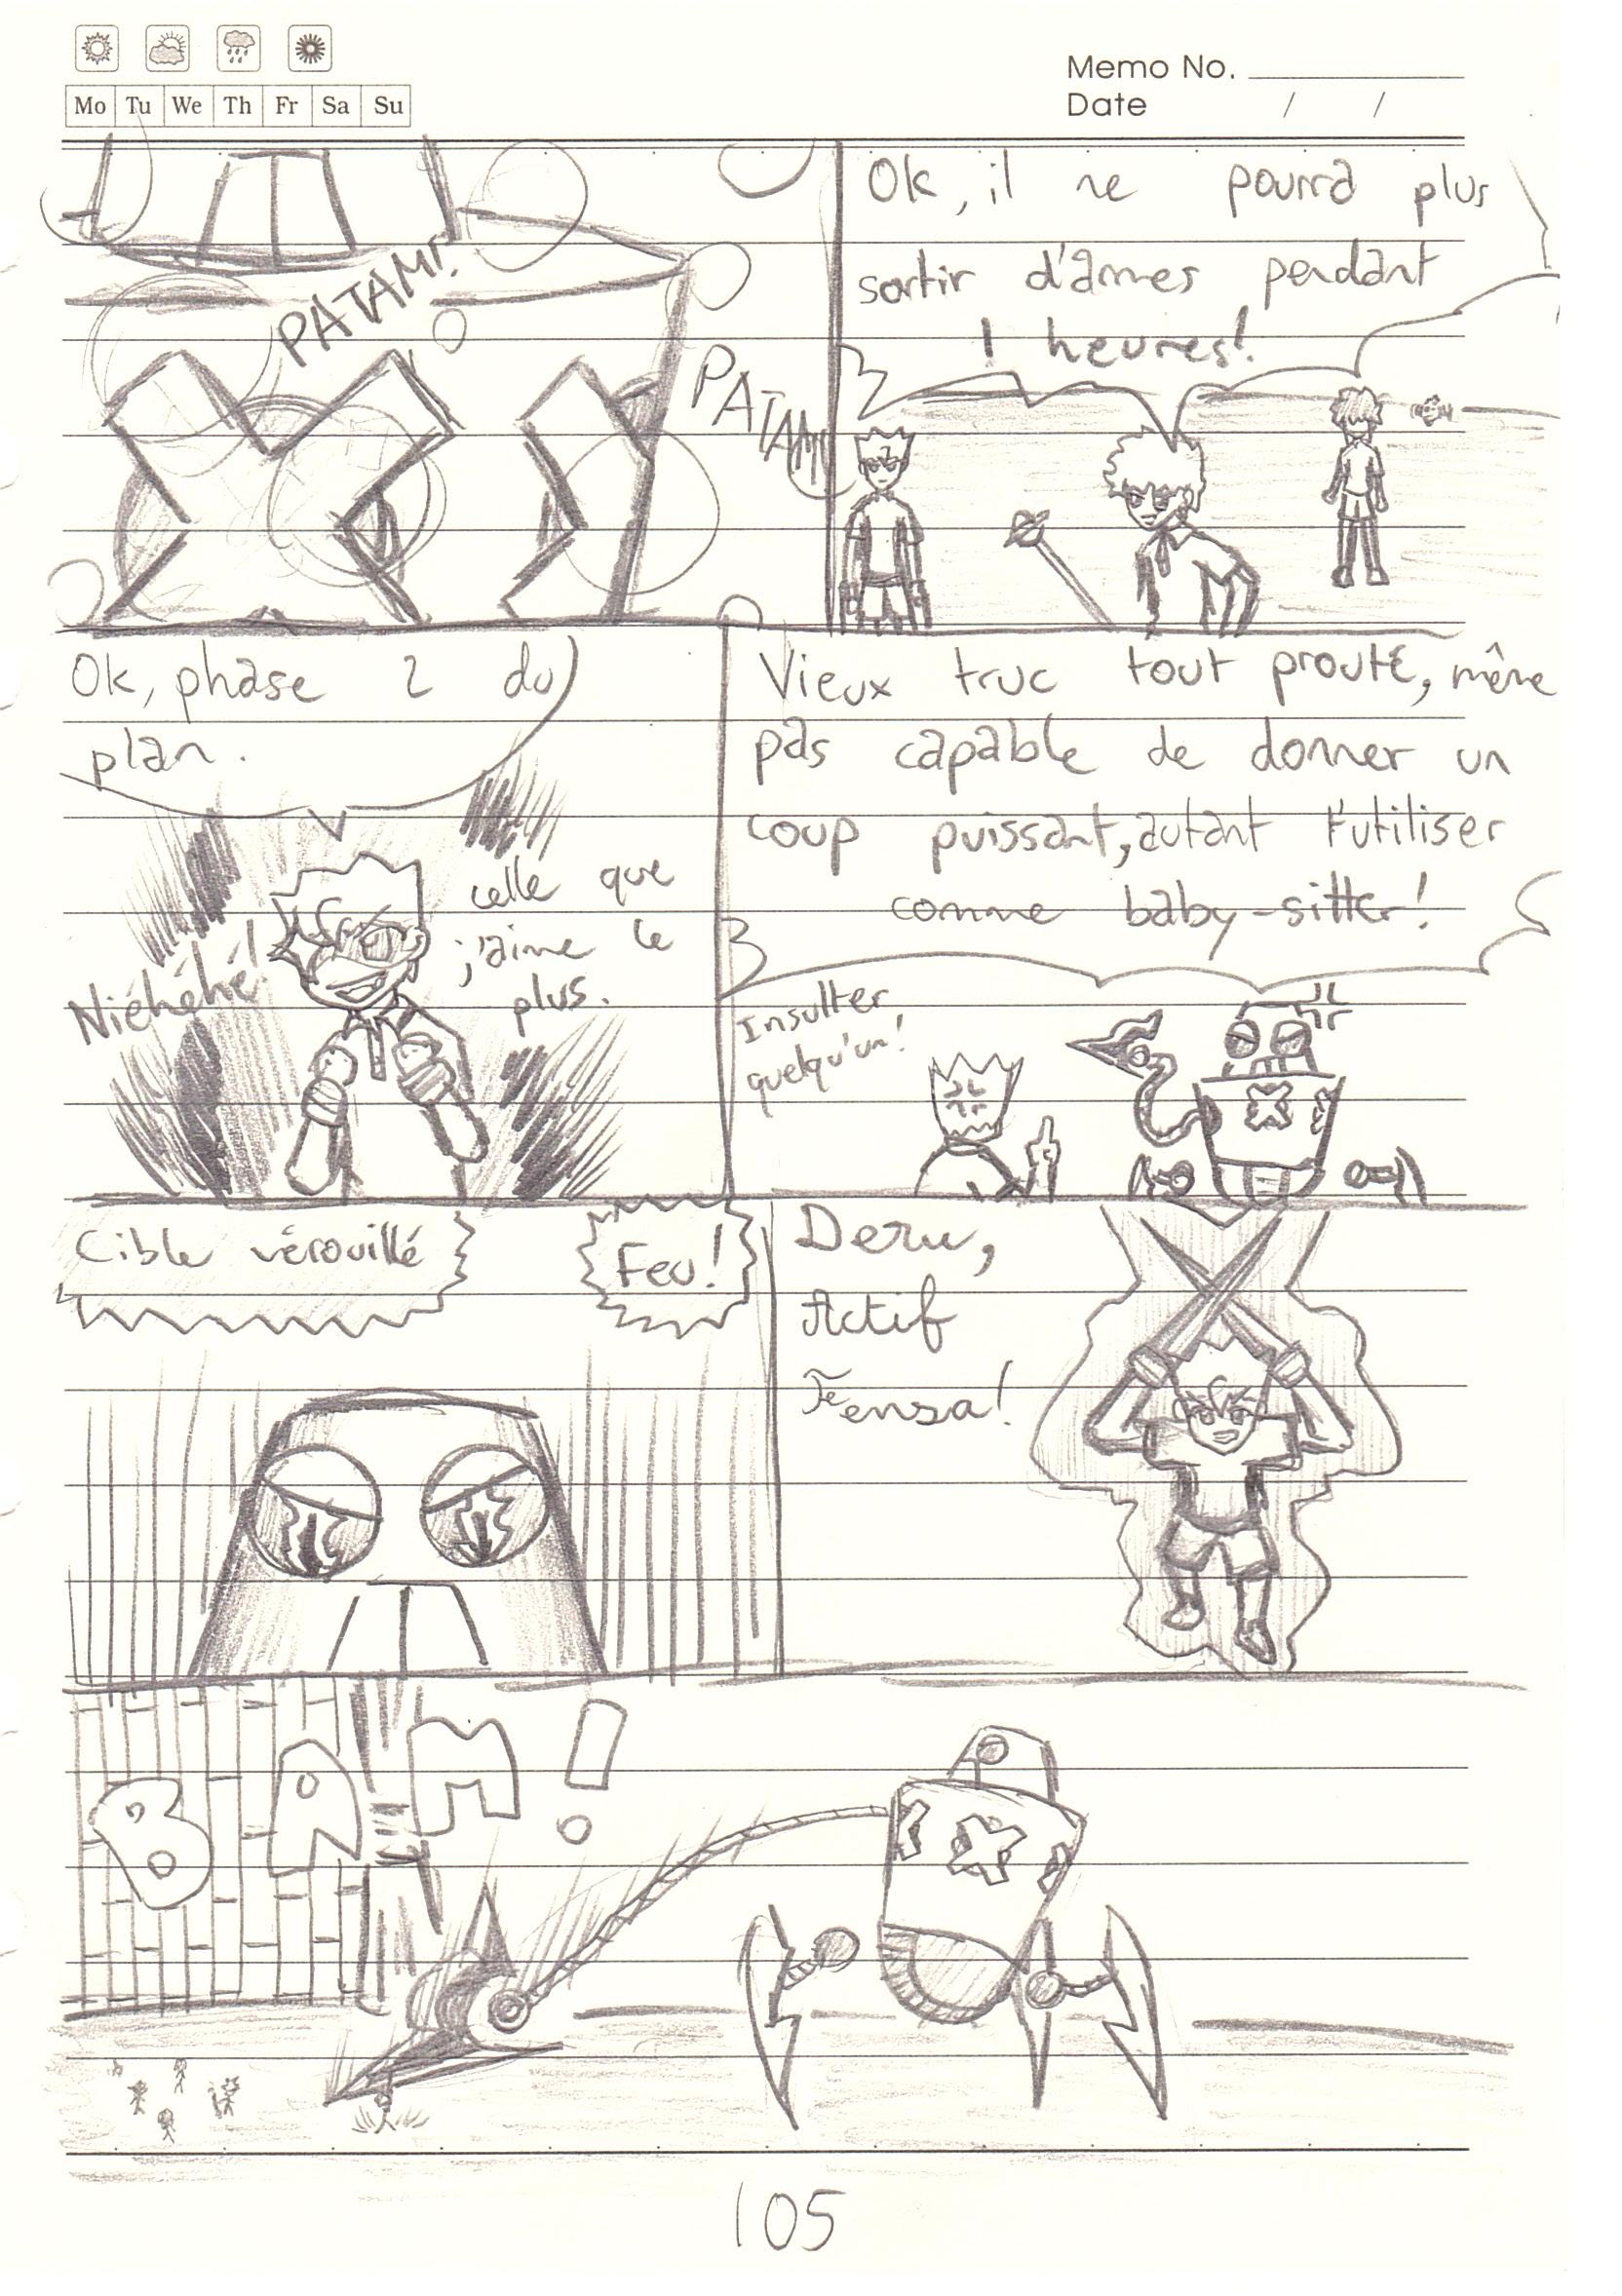 Memo No.
Date / /
Mo Tu We Th Fr Sa Su
PATAM!
PATAM!
Ok, il ne pourra plus
sortir d'armes pendant
1 heures!
Ok, phase 2 du
plan.
Niéhéhé!
celle que
j'aime le
plus.
Vieux truc tout prouté, même
pas capable de donner un
coup puissant, autant t'utiliser
comme baby-sitter!
Insulter
quelqu'un!
Cible vérouillé
Feu!
Deru,
Actif
Tensa!
BAM!
105